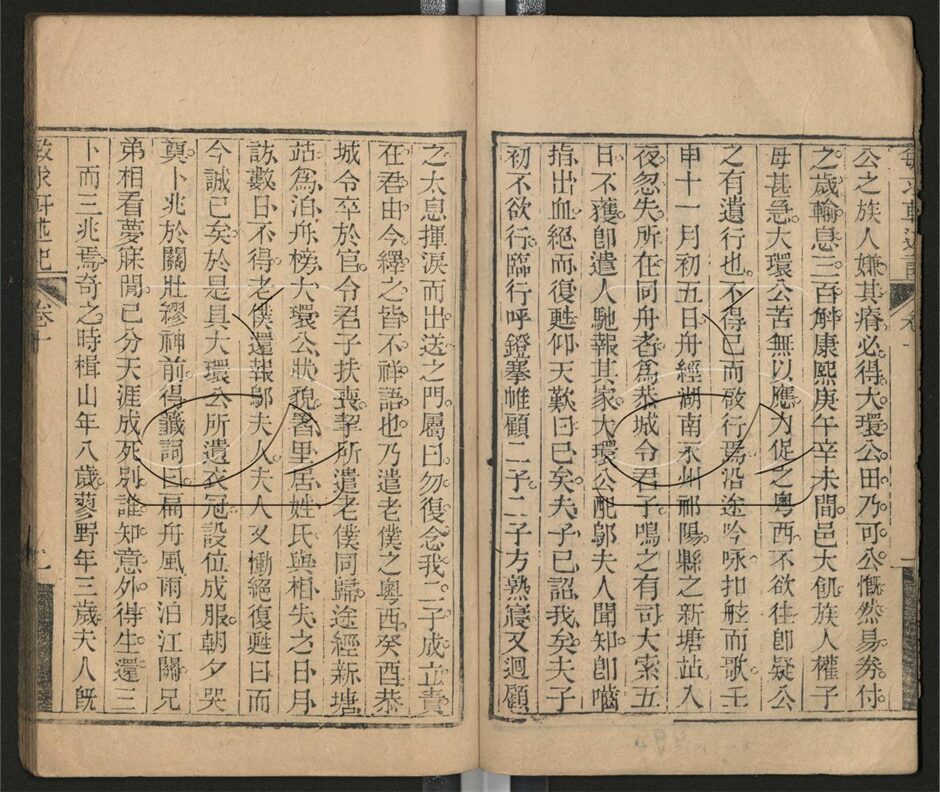 公之族人嫌其瘠必得大環公田乃可公慨然易券付
之歲輸息三百斛康熙庚午辛未間邑大飢族人權子
母甚急大環公苦無以應力促之粵西不欲往卽疑公
之有遺行也不得已而啟行焉沿途吟咏扣舷而歌壬
申十一月初五日舟經湖南永州祁陽縣之新塘站入
夜忽失所在同舟者爲恭城令君子鳴之有司大索五
日不獲卽遣人馳報其家大環公配鄔夫人聞知卽嚙
指出血絕而復甦仰天歎曰已矣夫子已詔我矣夫子
初不欲行臨行呼鐙搴帷顧二子二子方熟寢又迴顧
之太息揮淚而出送之門屬曰勿復念我二子成立責
在君由今繹之皆不祥語也乃遣老僕之粵西癸酉恭
城令卒於官令君子扶喪挈所遣老僕同歸途經新塘
站爲泊舟榜大環公狀貌暑里居姓氏與相失之日月
訪數日不得老僕還報鄔夫人夫人又慟絕復甦曰而
今誠已矣於是具大環公所遺衣冠設位成服朝夕哭
奠卜兆於關壯繆神前得籤詞曰扁舟風雨泊江關兄
弟相看夢寐間已分天涯成死別誰知意外得生還三
卜而三兆焉奇之時楫山年八歲蓼野年三歲夫人旣
敏求軒述記 卷十